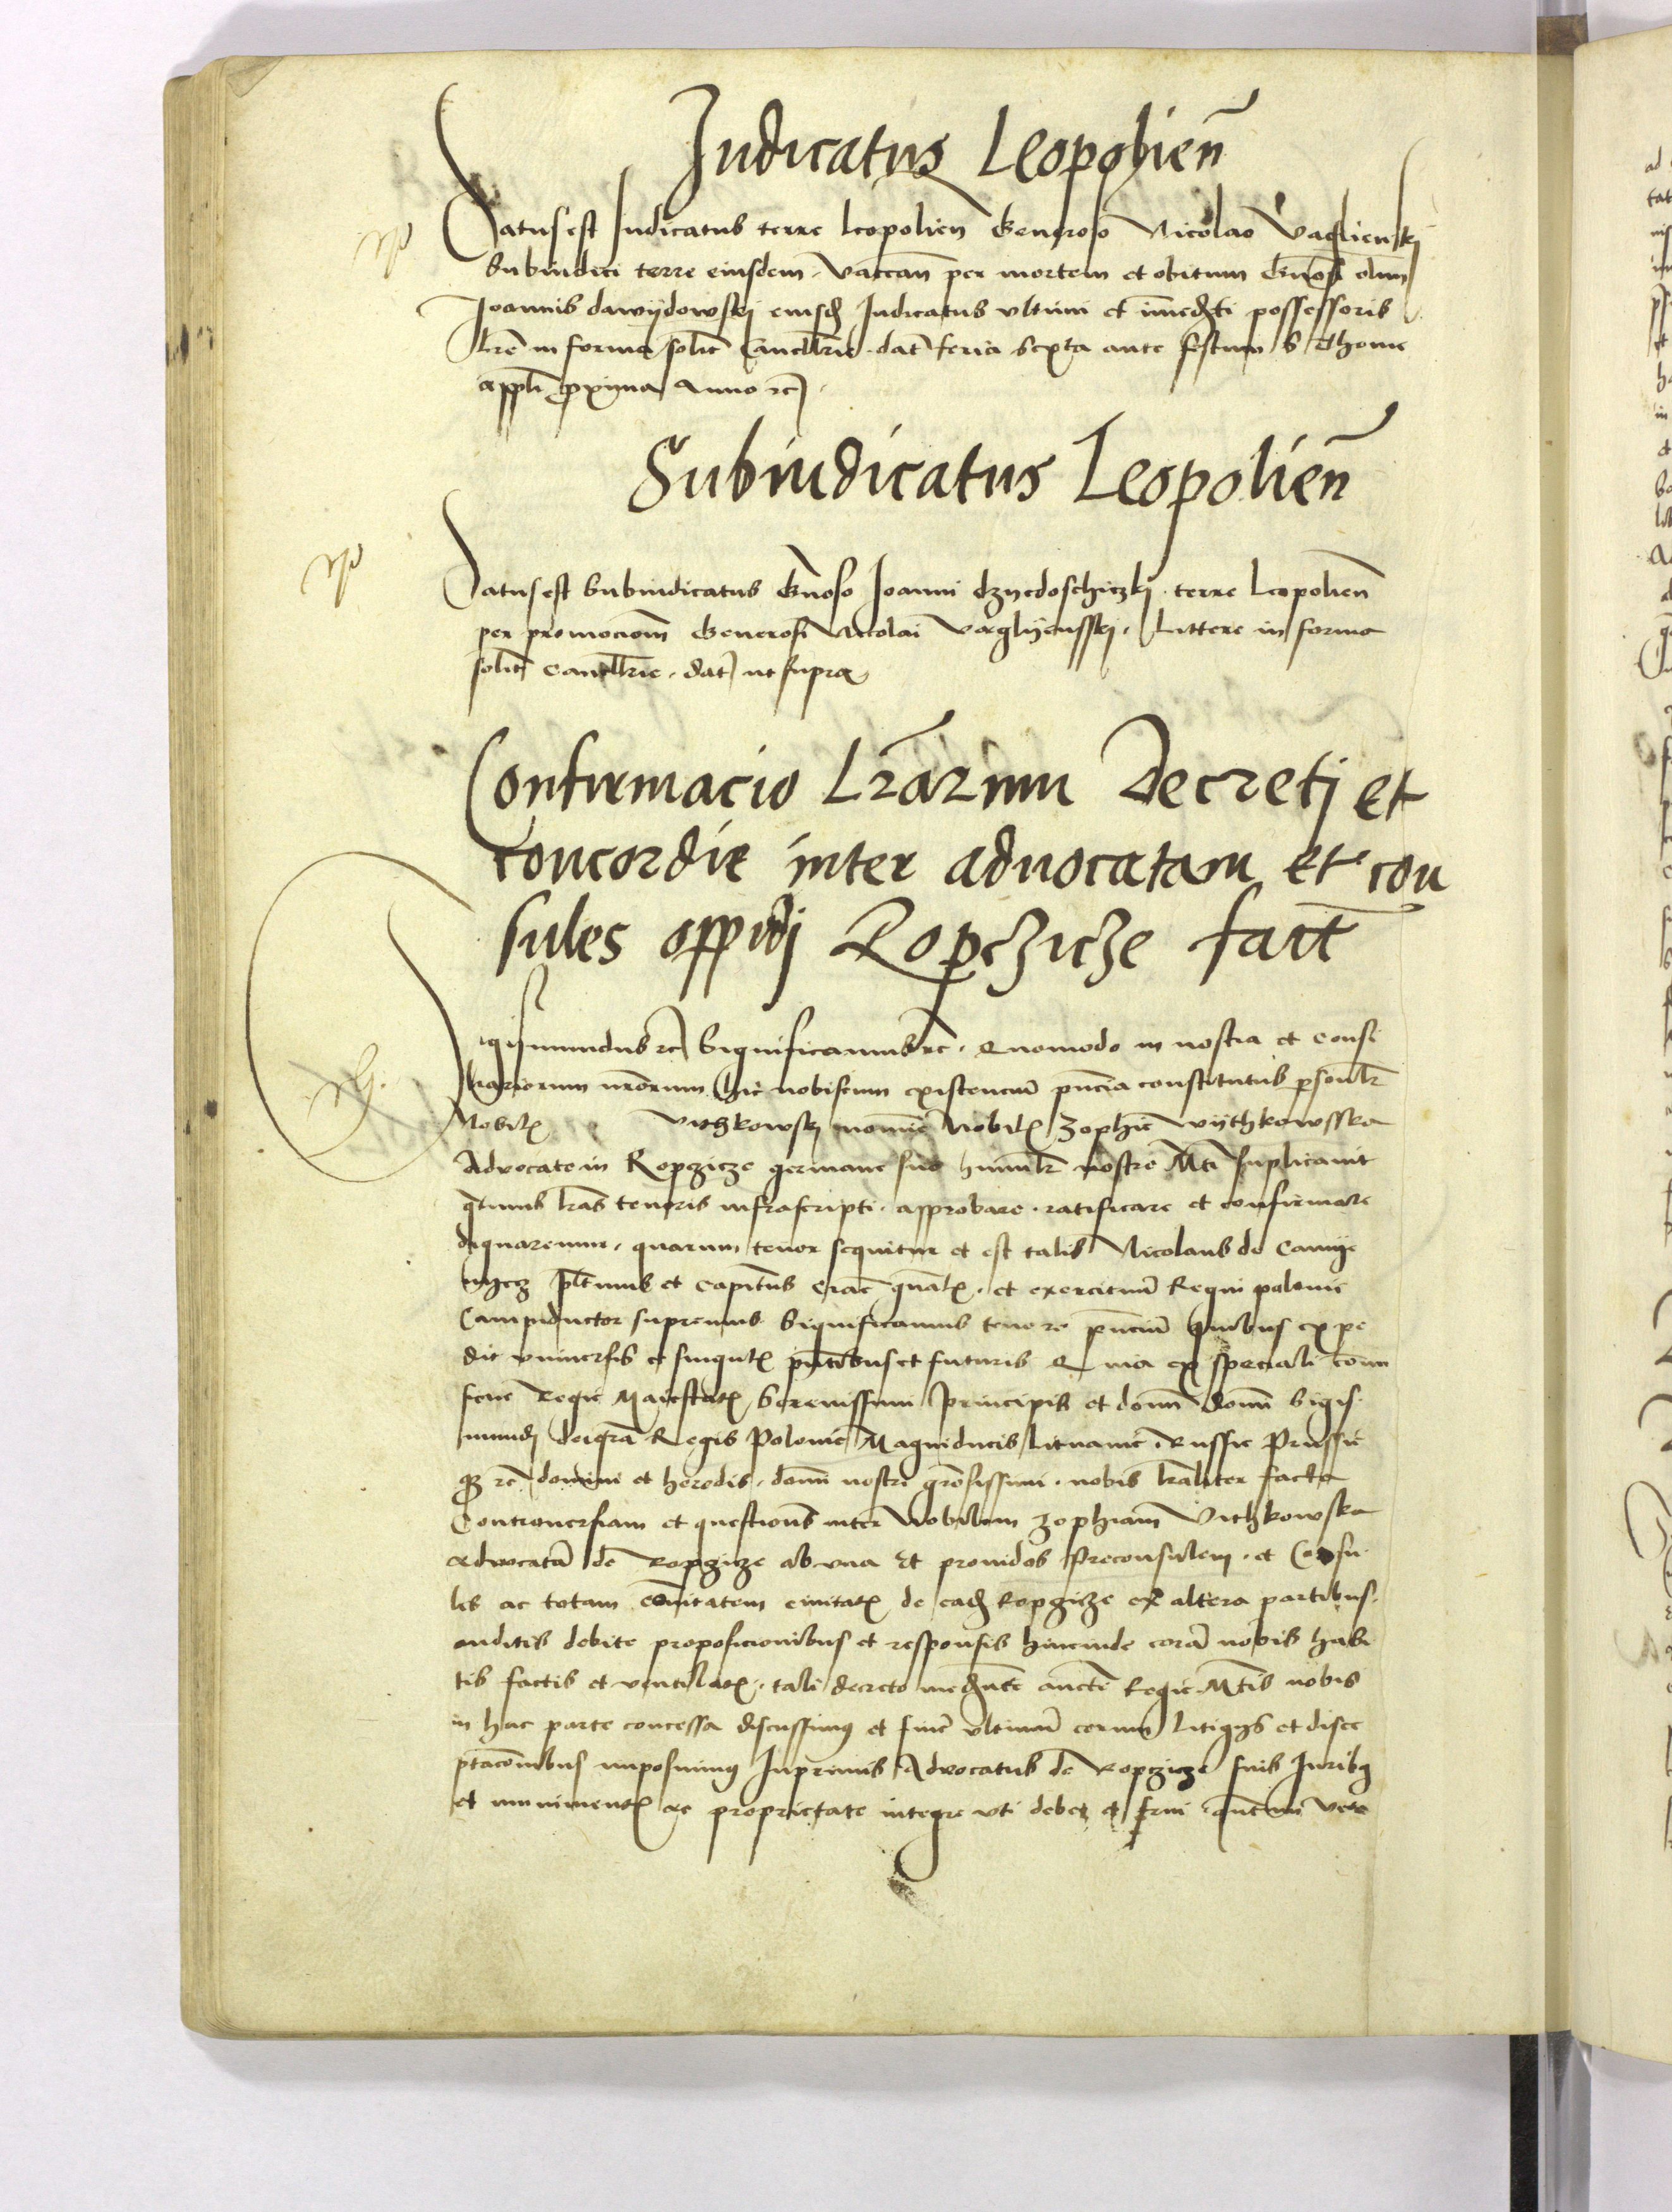 Iudicatus Leopolien̄
Datus est Iudicatus terre leopolien̄ Generoso Nicolao Vaglienskj
Subiudici terre eiusdem. Vaccan̄ per mortem et obitum Gn̄osi olim
Joannis dawijdowskj eiusd Iudicatus vltimi et im̄ed̄ti possessoris
Lrē in forma solit̄ Cancell̄rie. dat̄ feria sexta ante festum S Thome
appl̄i proxima Anno rc̄
Subiudicatus Leopolien̄
Datus est Subiudicatus Gn̄oso Joanni dzyedoschiczkj terre Leopolien̄
per promocionem Generosi Nicolai Vaglijensskj. Littere in forma
solit̄ cancell̄rie. dat̄ ut supra
Confirmacio Lr̄arum Decretj et
concordie inter aduocatam et con
sules oppidj Ropczicze fact̄
Sigismundus rc̄ Significamus rc̄. Quomodo in nostra et consi
liariorum nr̄orum hic nobiscum existenciū pn̄cia constitutus p̄sonl̄r
Nobil̄ Vithkowskj nomine Nobil̄ Zophie Vijthkowsska
Advocate in Ropczicze germane sue humil̄r nostre Mt̄i suplicauit
q̄tinus lr̄as tenoris infrascripti. approbare. ratificare et confirmare
dignaremur. quarum tenor sequitur et est talis Nicolaus de Camye
nyecz pl̄tinus et Capit̄nus Crac̄ gn̄al̄. et exercituū Regni polonie
Campiductor supremus Significamus tenore pn̄ciū quibus expe
dit vniuersis et singul̄ pn̄tibus et futuris Quia ex speciali com̄i
sione Regie Maiestat̄ Serenissimi Principis et domī domī Sigis
mundj dei gr̄a Regis Polonie Magniducis Lituanie. Russie Prussie
q̄ rc̄ domini et heredis. domī nostri gr̄osissimi. nobis lr̄aliter facta
Controuersiam et questionē inter Nobilem Zophiam Vithkowska
aduocatā de Ropczicze ab vna Et prouidos Preconsulem. et Consu
les ac totam cōitatem ciuitat̄ de ead Ropczicze ex altera partibus.
auditis debite proposicionibus et responsis hincinde corā nobis habi
tis factis et ventilat̄. tali decreto med̄nte auct̄e Regie Mt̄is nobis
in hac parte concessa discussimus et finē vltimū eorum litigijs et disce
ptac̄onibus imposuimus Inprimis Advocatus de Ropczicze suis Iuribus
et muniment̄ ac proprietate integre vti debet et frui